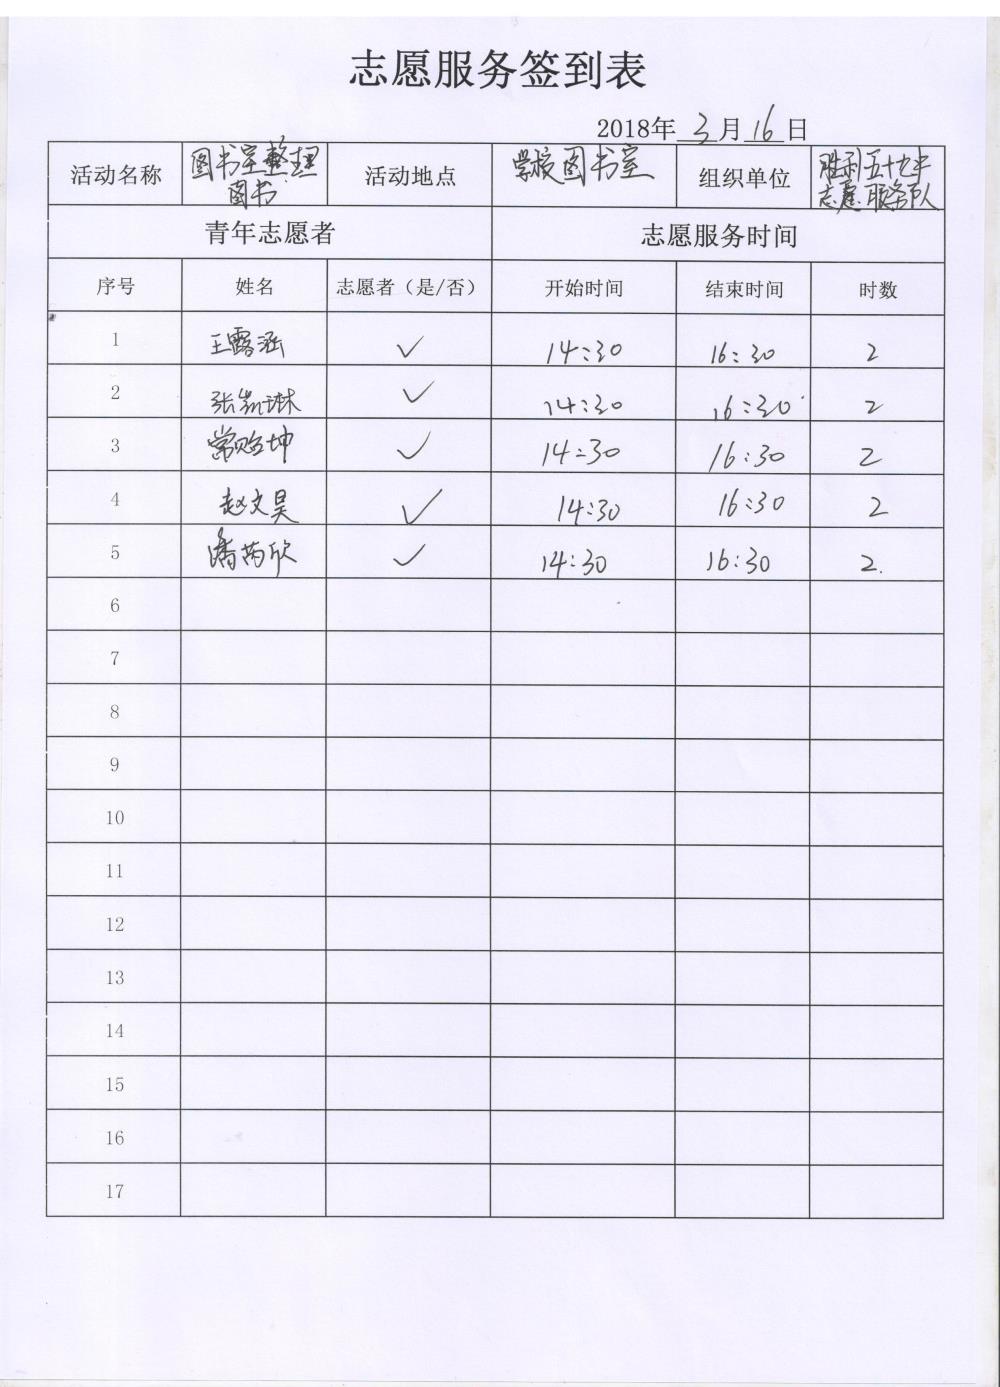 志愿服务签到表
2018年 3 月 16 日
活动名称 图书室整理图书 活动地点 学校图书室 组织单位 胜利五十九中志愿服务队
青年志愿者 志愿服务时间
序号 姓名 志愿者（是/否） 开始时间 结束时间 时数
1 王露涵 ✓ 14:30 16:30 2
2 张凯琳 ✓ 14:30 16:30 2
3 常贻坤 ✓ 14:30 16:30 2
4 赵文昊 ✓ 14:30 16:30 2
5 潘芮欣 ✓ 14:30 16:30 2.
6
7
8
9
10
11
12
13
14
15
16
17